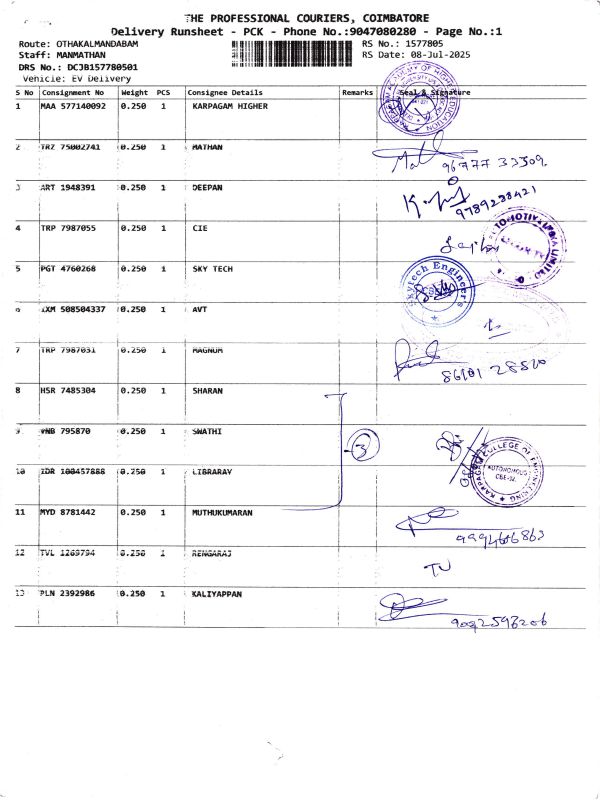 THE PROFESSIONAL COURIERS, COIMBATORE
Delivery Runsheet - PCK - Phone No.:9047080280 - Page No.:1
Route: OTHAKALMANDABAM RS No.: 1577805
Staff: MANMATHAN RS Date: 08-Jul-2025
DRS No.: DCJB15780501
Vehicle: EV Delivery
S No Consignment No Weight PCS Consignee Details Remarks Seal & Signature
1 MAA 577140092 0.250 1 KARPAGAM HIGHER
2 TRZ 75002741 0.250 1 MATHAN
96777 33309
3 ART 1948391 0.250 1 DEEPAN
9789238421
4 TRP 7987055 0.250 1 CIE
5 PGT 4760268 0.250 1 SKY TECH
Skytech Engineer's
6 IXM 508504337 0.250 1 AVT
7 TRP 7987031 0.250 1 MAGNUM
8 HSR 7485304 0.250 1 SHARAN
9 VNB 795870 0.250 1 SWATHI
3
10 IDR 100457888 0.250 1 LIBRARAY
KARPAGAM COLLEGE OF ENGINEERING
AUTONOMOUS
CBE-32.
11 MYD 8781442 0.250 1 MUTHUKUMARAN
12 TVL 1269794 0.250 1 RENGARAJ
TU
13 PLN 2392986 0.250 1 KALIYAPPAN